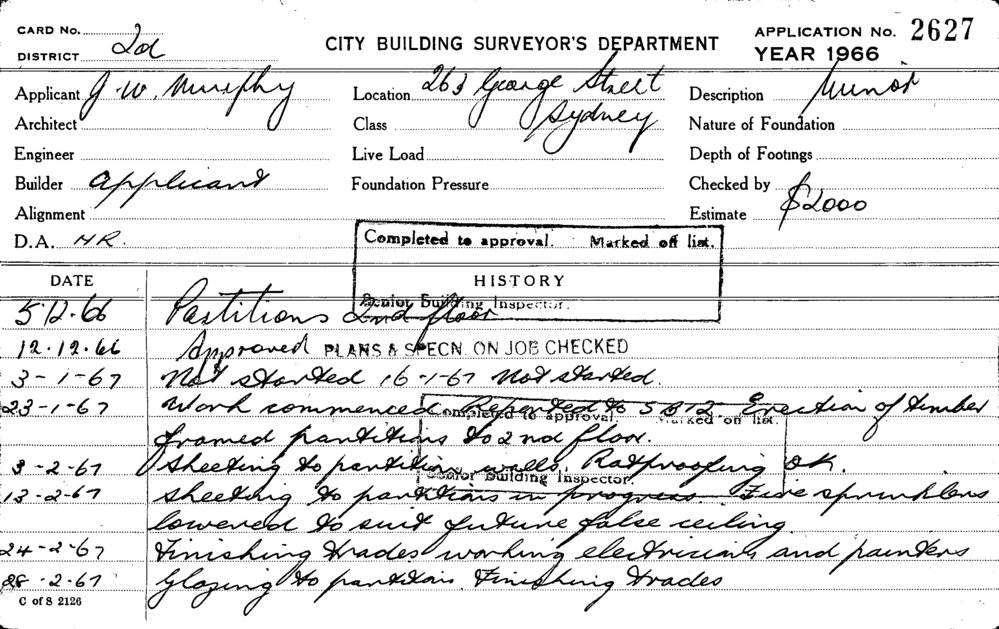 CARD No.
DISTRICT 2d
CITY BUILDING SURVEYOR'S DEPARTMENT
APPLICATION No. 2627
YEAR 1966
Applicant J. W. Murphy
Location 263 George Street
Sydney
Description Minor
Architect
Class
Nature of Foundation
Engineer
Live Load
Depth of Footings
Builder Applicant
Foundation Pressure
Checked by
Alignment
Estimate $2000
D.A. HR.
Completed to approval. Marked off list.
Senior Building Inspector.
DATE HISTORY
5.12.66 Partitions 2nd floor
12.12.66 Approved PLANS & SPECN. ON JOB CHECKED
3-1-67 Not started 16-1-67 Not started.
23-1-67 Work commenced Reported to SB12 Erection of timber
framed partitions to 2nd floor.
Completed to approval. Marked off list.
Senior Building Inspector.
3-2-67 Sheeting to partition walls. Ratproofing OK.
13-2-67 Sheeting to partitions in progress Fire sprinklers
lowered to suit future false ceiling
24-2-67 Finishing trades working electricians and painters
28-2-67 Glazing to partitions Finishing trades
C of S 2126